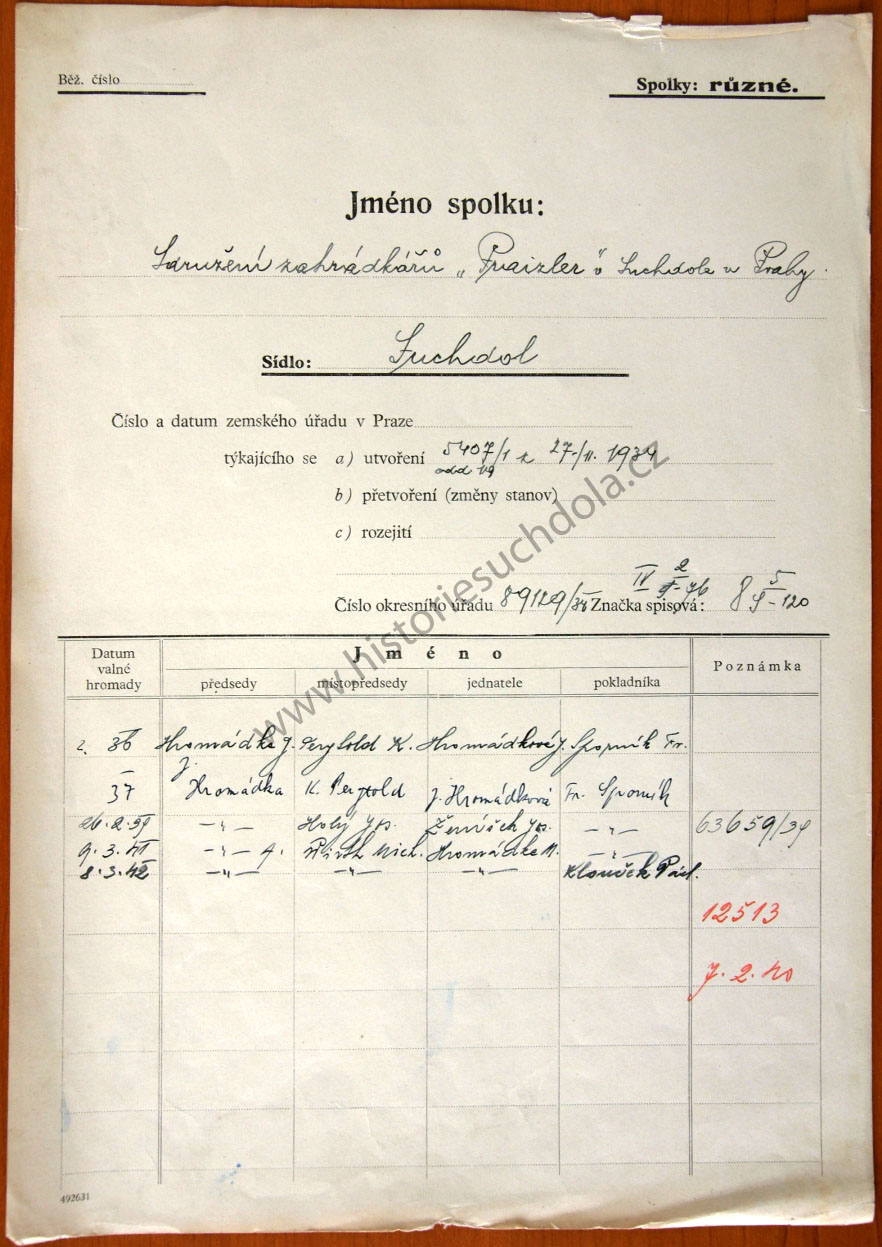 Běž. číslo
Spolky: různé.
Jméno spolku:
Sdružení zahrádkářů „Praizler“ v Suchdole u Prahy.
Sídlo: Suchdol
Číslo a datum zemského úřadu v Praze
týkajícího se a) utvoření 5407/1 z 27./11. 1934
odd 19
b) přetvoření (změny stanov)
c) rozejití
IV 2
Číslo okresního úřadu 89129/34 Značka spisová: 8 5
Datum valné hromady
Jméno
předsedy místopředsedy jednatele pokladníka
Poznámka
2. 36 Hromádka J. Pergtold K. Hromádková J. Sporník Fr.
37 J. Hromádka K. Pergtold J. Hromádková Fr. Sporník
26.2.39 —„— Holý Jos. Jos. —„— 63659/39
9.3.41 —„— A. Mich. Hromádka —„—
8.3.42 —„— —„— —„— Klouček
12513
7.2.40
492631
www.historiesuchdola.cz